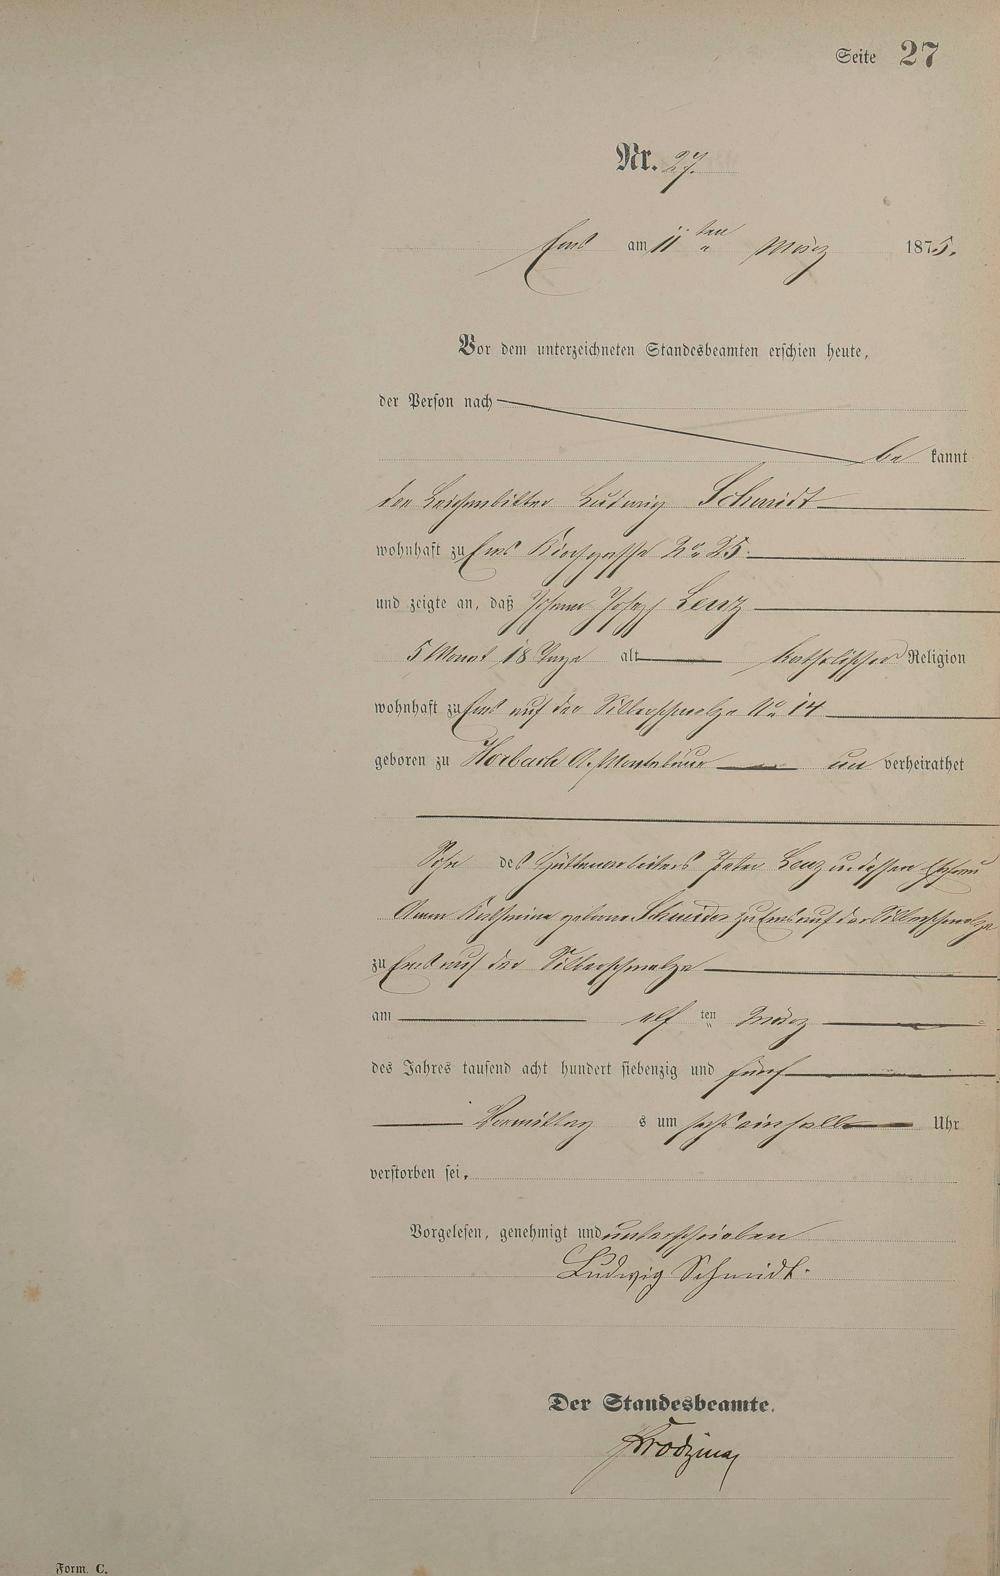 Seite 27
Nr. 27.
Ems am 11ten März 1875.
Vor dem unterzeichneten Standesbeamten erschien heute,
der Person nach
be kannt
der Leichenbitter Ludwig Schmidt
wohnhaft zu Ems Kirchgasse No 25
und zeigte an, daß Johann Joseph Lenz
5 Monat 18 Tage alt katholischer Religion
wohnhaft zu Ems auf der Silberschmelze No 14
geboren zu Horbach A. Montabaur un verheirathet
Sohn des Hüttenarbeiters Peter Lenz u. dessen Ehefrau
Anna Katharina geborne Schneider zu Ems auf der Silberschmelze
zu Ems auf der Silberschmelze
am elf ten März
des Jahres tausend acht hundert siebenzig und fünf
Vormittag s um sechs einhalb Uhr
verstorben sei.
Vorgelesen, genehmigt und unterschrieben
Ludwig Schmidt.
Der Standesbeamte.
Form. C.